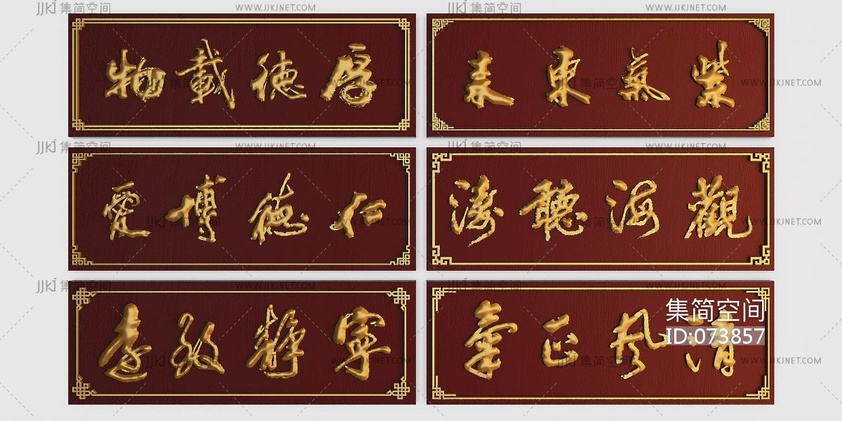 JJKJ 集简空间 WWW.JJKJNET.COM JJKJ 集简空间 WWW.JJKJNET.COM
厚德載物
紫氣東来
仁德博愛
觀海聽濤
寧靜致遠
清風正氣
集简空间
ID:073857